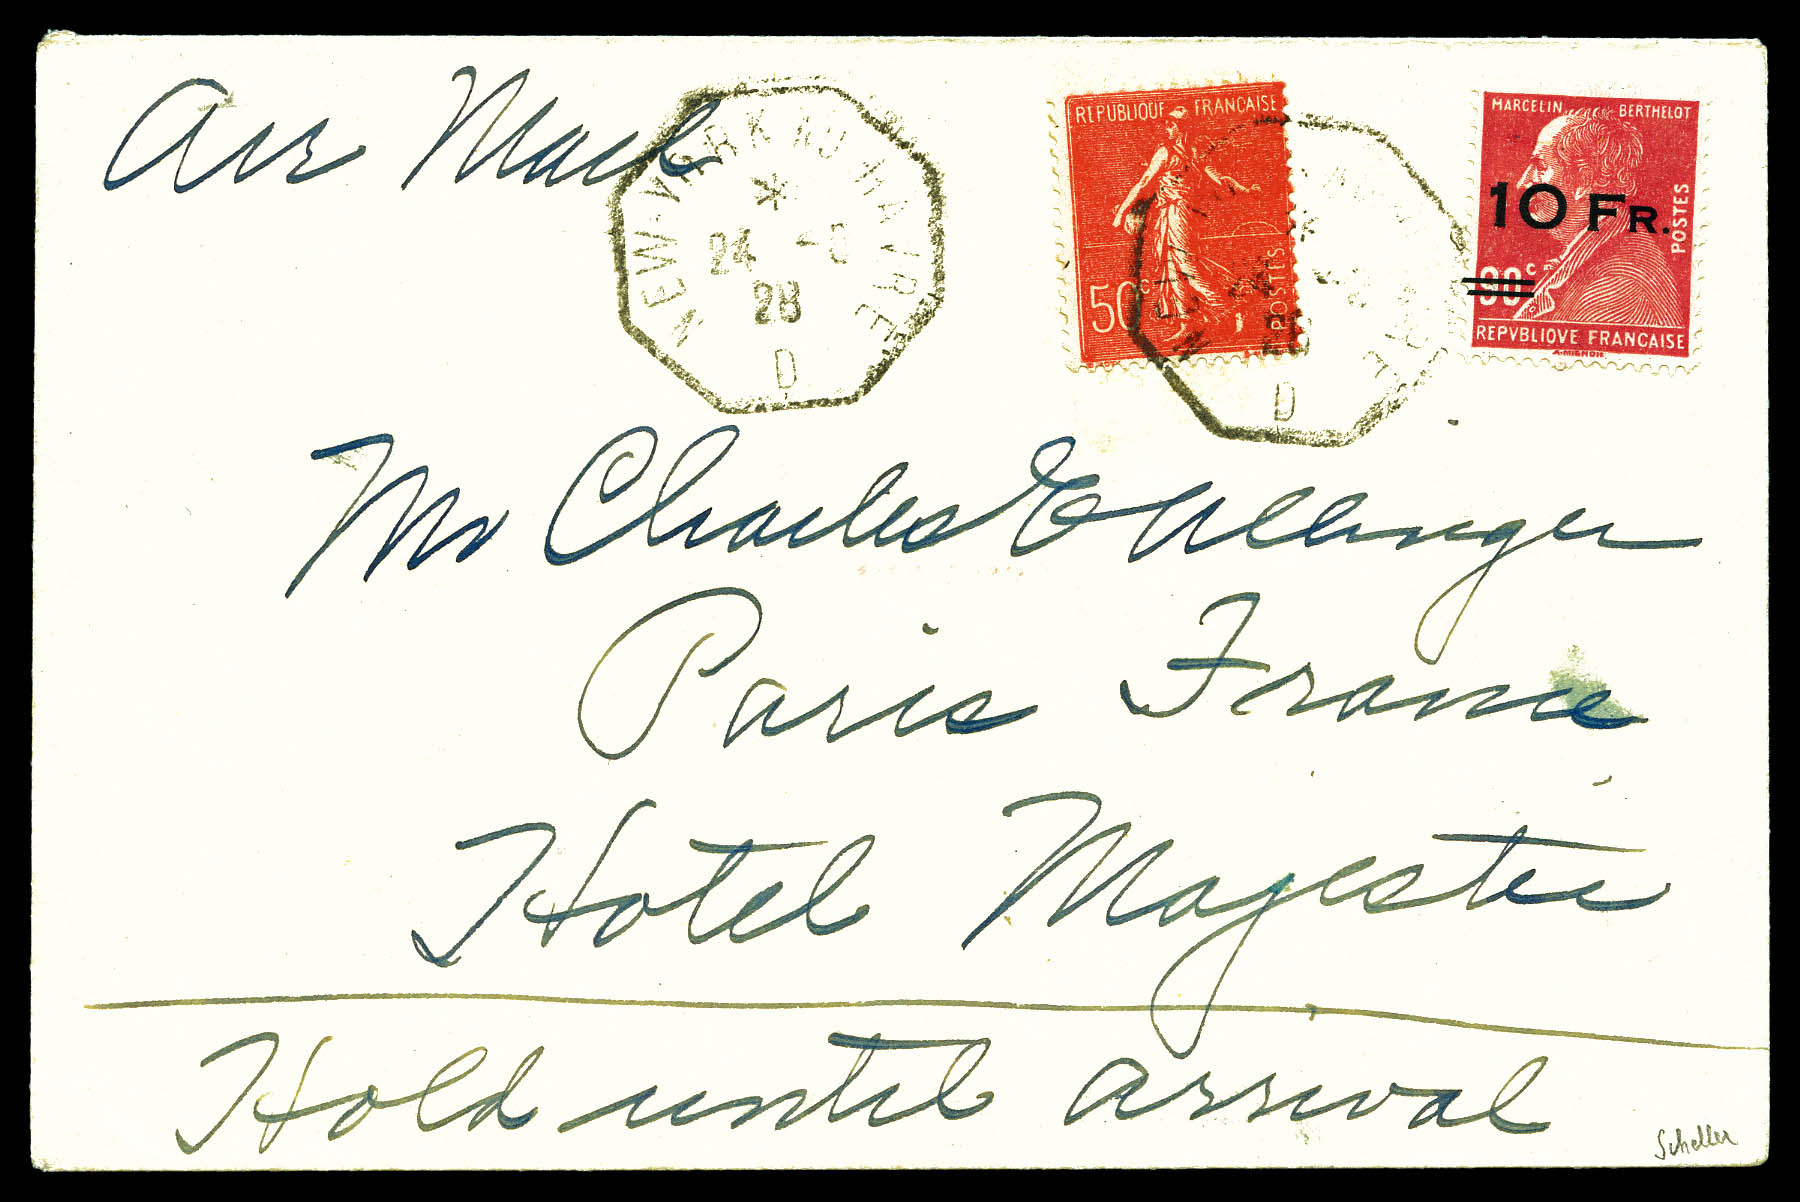 Air Mail
NEW-YORK AU HAVRE
*
24 -8
28
D
REPUBLIQUE FRANCAISE
50c
POSTES
D
MARCELIN BERTHELOT
10 FR.
POSTES
90c
REPVBLIQVE FRANCAISE
A. MIGNON
Mr Charles E
Paris France
Hotel Majestic
Hold until arrival
Scheller